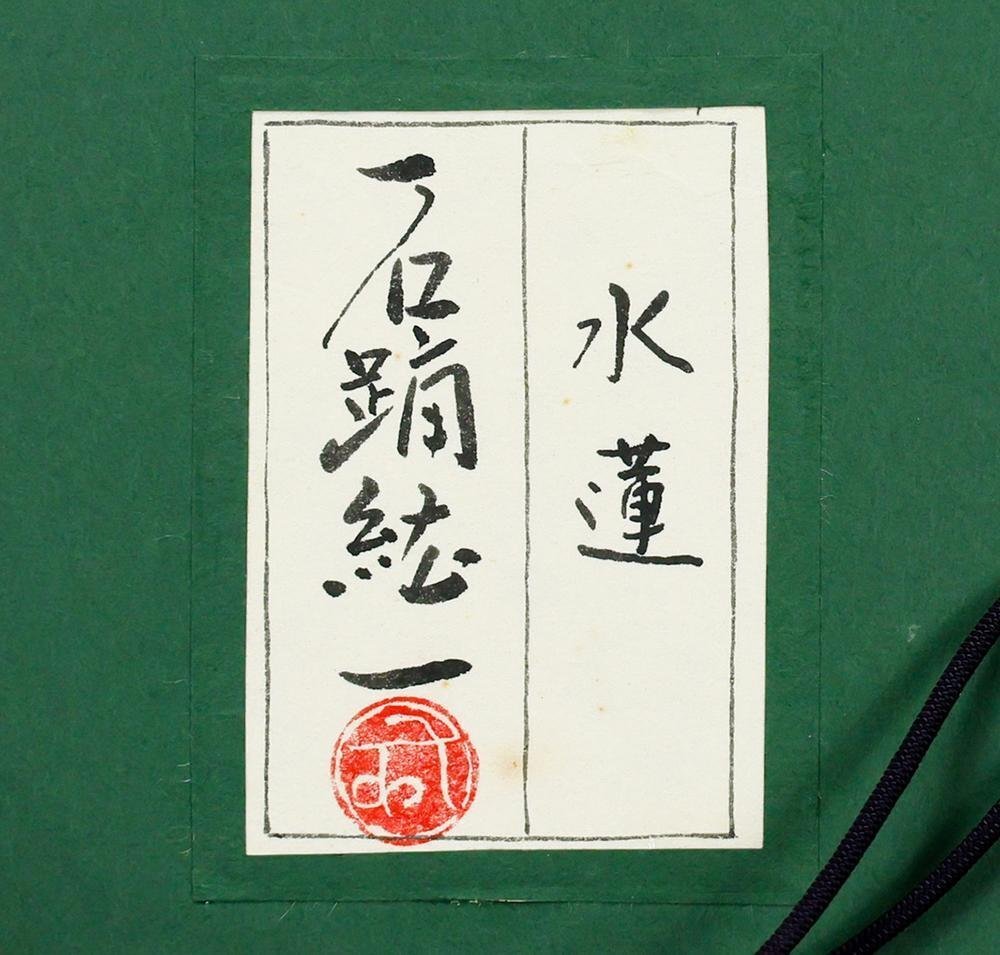 水蓮
石踊紘一